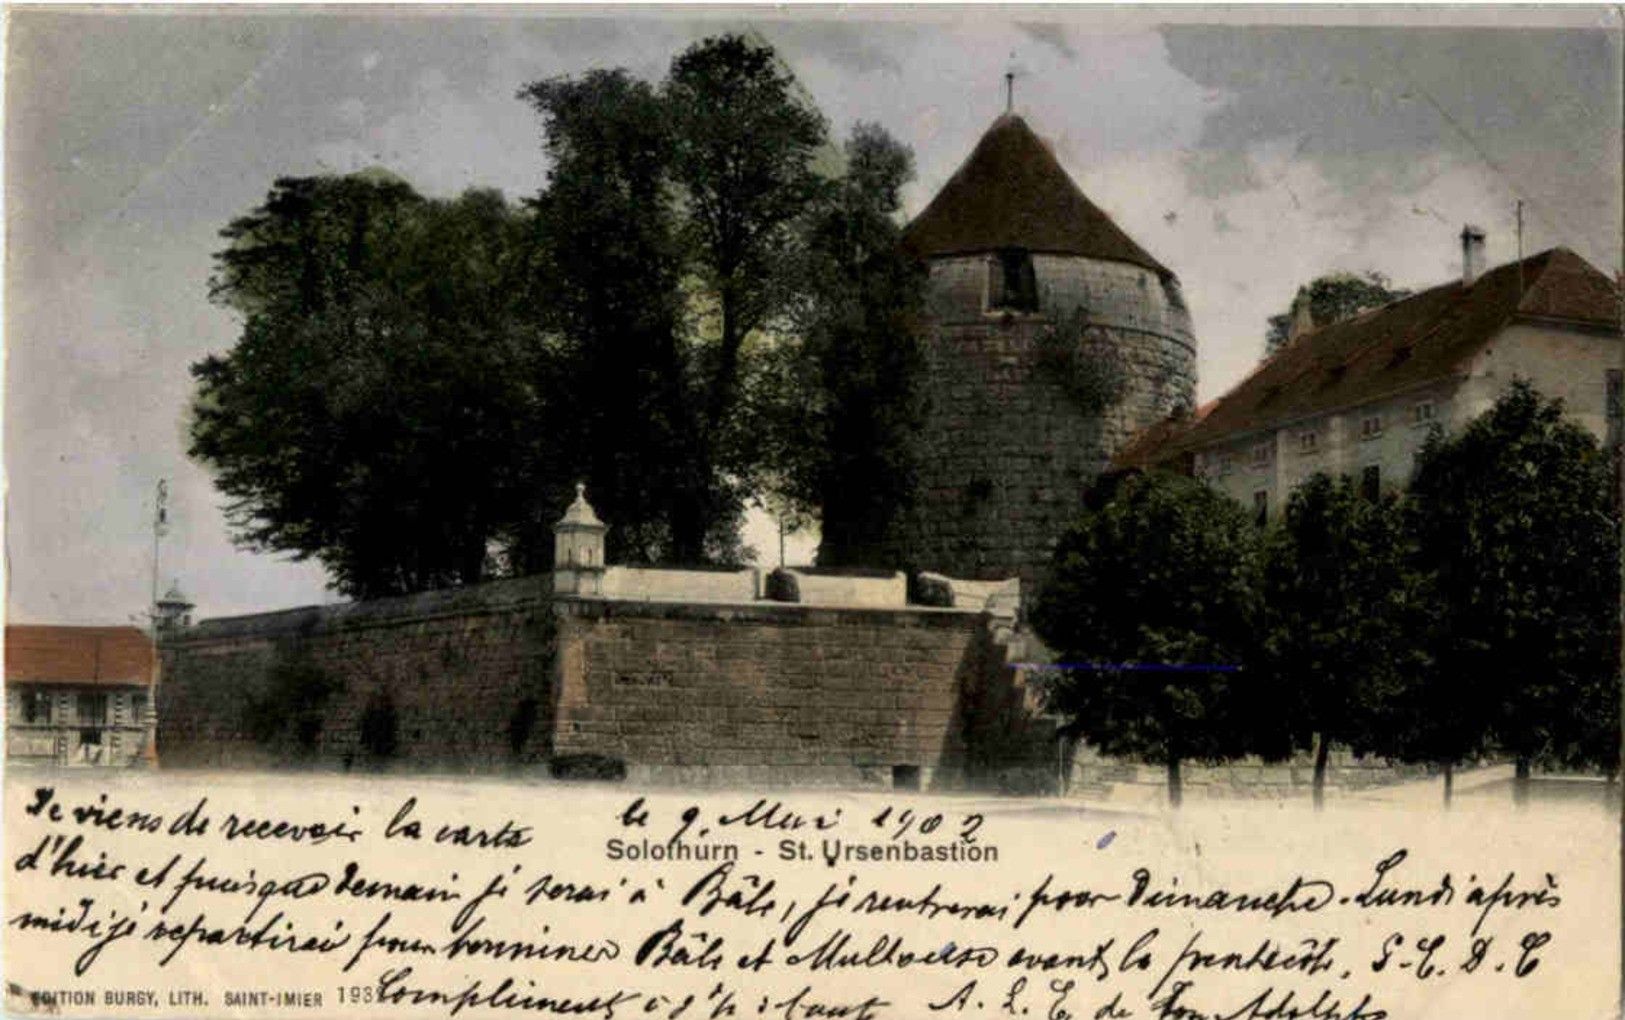 le 9. Mai 1902
Solothurn - St. Ursenbastion
Je viens de recevoir la carte
d'hier et puisque demain je serai à Bâle, je rentrerai pour Dimanche. Lundi après
midi je repartirai pour terminer Bâle et Mulhouse avant la pentecôte. S.E.D.C
EDITION BURGY, LITH. SAINT-IMIER 193
Compliments à A. L. E de ton Adolphe